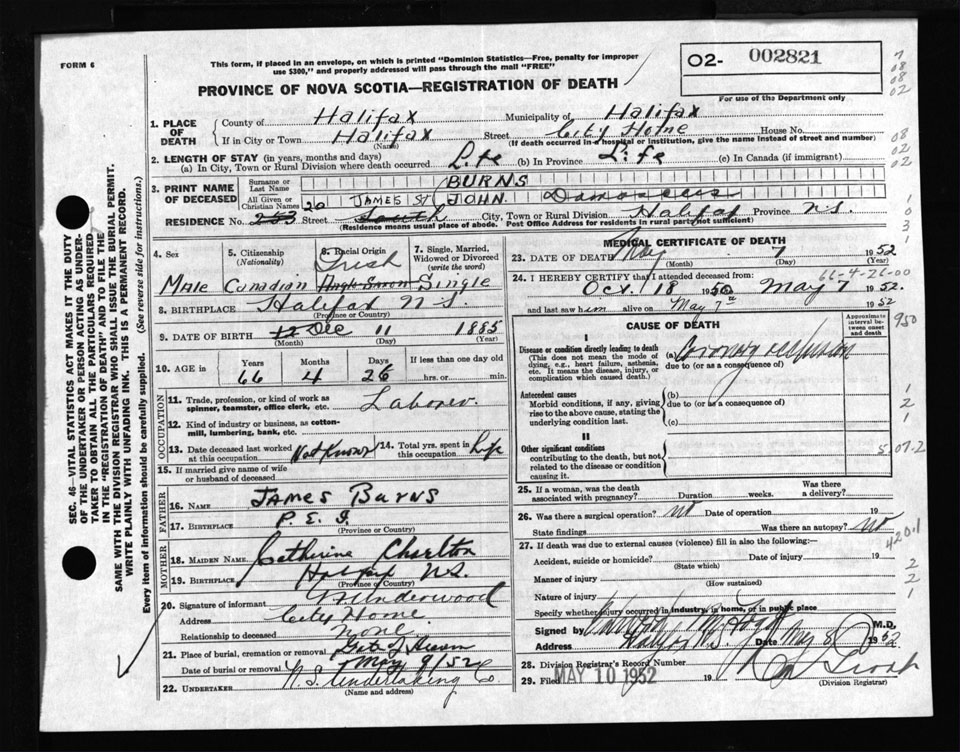 FORM 6
This form, if placed in an envelope, on which is printed "Dominion Statistics—Free, penalty for improper
use $300," and properly addressed will pass through the mail "FREE"
PROVINCE OF NOVA SCOTIA—REGISTRATION OF DEATH
02- 002821
For use of the Department only
7
08
08
02
1. PLACE OF DEATH
County of Halifax Municipality of Halifax
If in City or Town Halifax Street City Home House No.
(Name) (If death occurred in a hospital or institution, give the name instead of street and number)
08
02
02
2. LENGTH OF STAY (in years, months and days)
(a) In City, Town or Rural Division where death occurred Life (b) In Province Life (c) In Canada (if immigrant)
3. PRINT NAME OF DECEASED
Surname or Last Name BURNS
All Given or Christian Names JAMES JOHN
20 ST
RESIDENCE No. 253 Street South City, Town or Rural Division Halifax Province N.S.
(Residence means usual place of abode. Post Office Address for residents in rural part not sufficient)
1
0
3
1
4. Sex
Male
5. Citizenship (Nationality)
Canadian
6. Racial Origin
Irish
Anglo-Saxon
7. Single, Married, Widowed or Divorced (write the word)
Single
8. BIRTHPLACE Halifax N.S.
(Province or Country)
9. DATE OF BIRTH 12 Dec 11 1885
(Month) (Day) (Year)
10. AGE in Years Months Days If less than one day old
66 4 26 hrs. or min.
OCCUPATION
11. Trade, profession, or kind of work as spinner, teamster, office clerk, etc. Laborer.
12. Kind of industry or business, as cotton-mill, lumbering, bank, etc.
13. Date deceased last worked at this occupation Not Known
14. Total yrs. spent in this occupation Life
15. If married give name of wife or husband of deceased
FATHER
16. NAME JAMES BURNS
17. BIRTHPLACE P.E.I.
(Province or Country)
MOTHER
18. MAIDEN NAME Catherine Charlton
19. BIRTHPLACE Halifax N.S.
(Province or Country)
20. Signature of informant Underwood
Address City Home
Relationship to deceased None
21. Place of burial, cremation or removal Gate of Heaven
Date of burial or removal May 9/52
22. UNDERTAKER N.S. Undertaking Co.
(Name and address)
MEDICAL CERTIFICATE OF DEATH
23. DATE OF DEATH May 7 1952
(Month) (Day) (Year)
66-4-26-00
24. I HEREBY CERTIFY that I attended deceased from
Oct. 18 1950 to May 7 1952.
and last saw him alive on May 7th 1952
CAUSE OF DEATH
Approximate interval between onset and death
950
I
Disease or condition directly leading to death
(This does not mean the mode of dying, e.g., heart failure, asthenia, etc. It means the disease, injury, or complication which caused death.)
(a) Coronary occlusion
due to (or as a consequence of)
Antecedent causes
Morbid conditions, if any, giving rise to the above cause, stating the underlying condition last.
(b)
due to (or as a consequence of)
(c)
1
2
1
II
Other significant conditions
contributing to the death, but not related to the disease or condition causing it.
5.07.2
25. If a woman, was the death associated with pregnancy? Duration weeks. Was there a delivery?
26. Was there a surgical operation? no Date of operation 19
State findings Was there an autopsy? no
420.1
27. If death was due to external causes (violence) fill in also the following:—
Accident, suicide or homicide? Date of injury 19
(State which)
Manner of injury
(How sustained)
Nature of injury
2
2
1
Specify whether injury occurred in industry, in home, or in public place
Signed by M.D.
Address Halifax N.S. Date May 8 1952
28. Division Registrar's Record Number
29. Filed MAY 10 1952 19
(Division Registrar)
SEC. 46—VITAL STATISTICS ACT MAKES IT THE DUTY
OF THE UNDERTAKER OR PERSON ACTING AS UNDER-
TAKER TO OBTAIN ALL THE PARTICULARS REQUIRED
IN THE "REGISTRATION OF DEATH" AND TO FILE THE
SAME WITH THE DIVISION REGISTRAR WHO SHALL ISSUE THE BURIAL PERMIT.
WRITE PLAINLY WITH UNFADING INK. THIS IS A PERMANENT RECORD.
Every item of information should be carefully supplied. (See reverse side for instructions.)